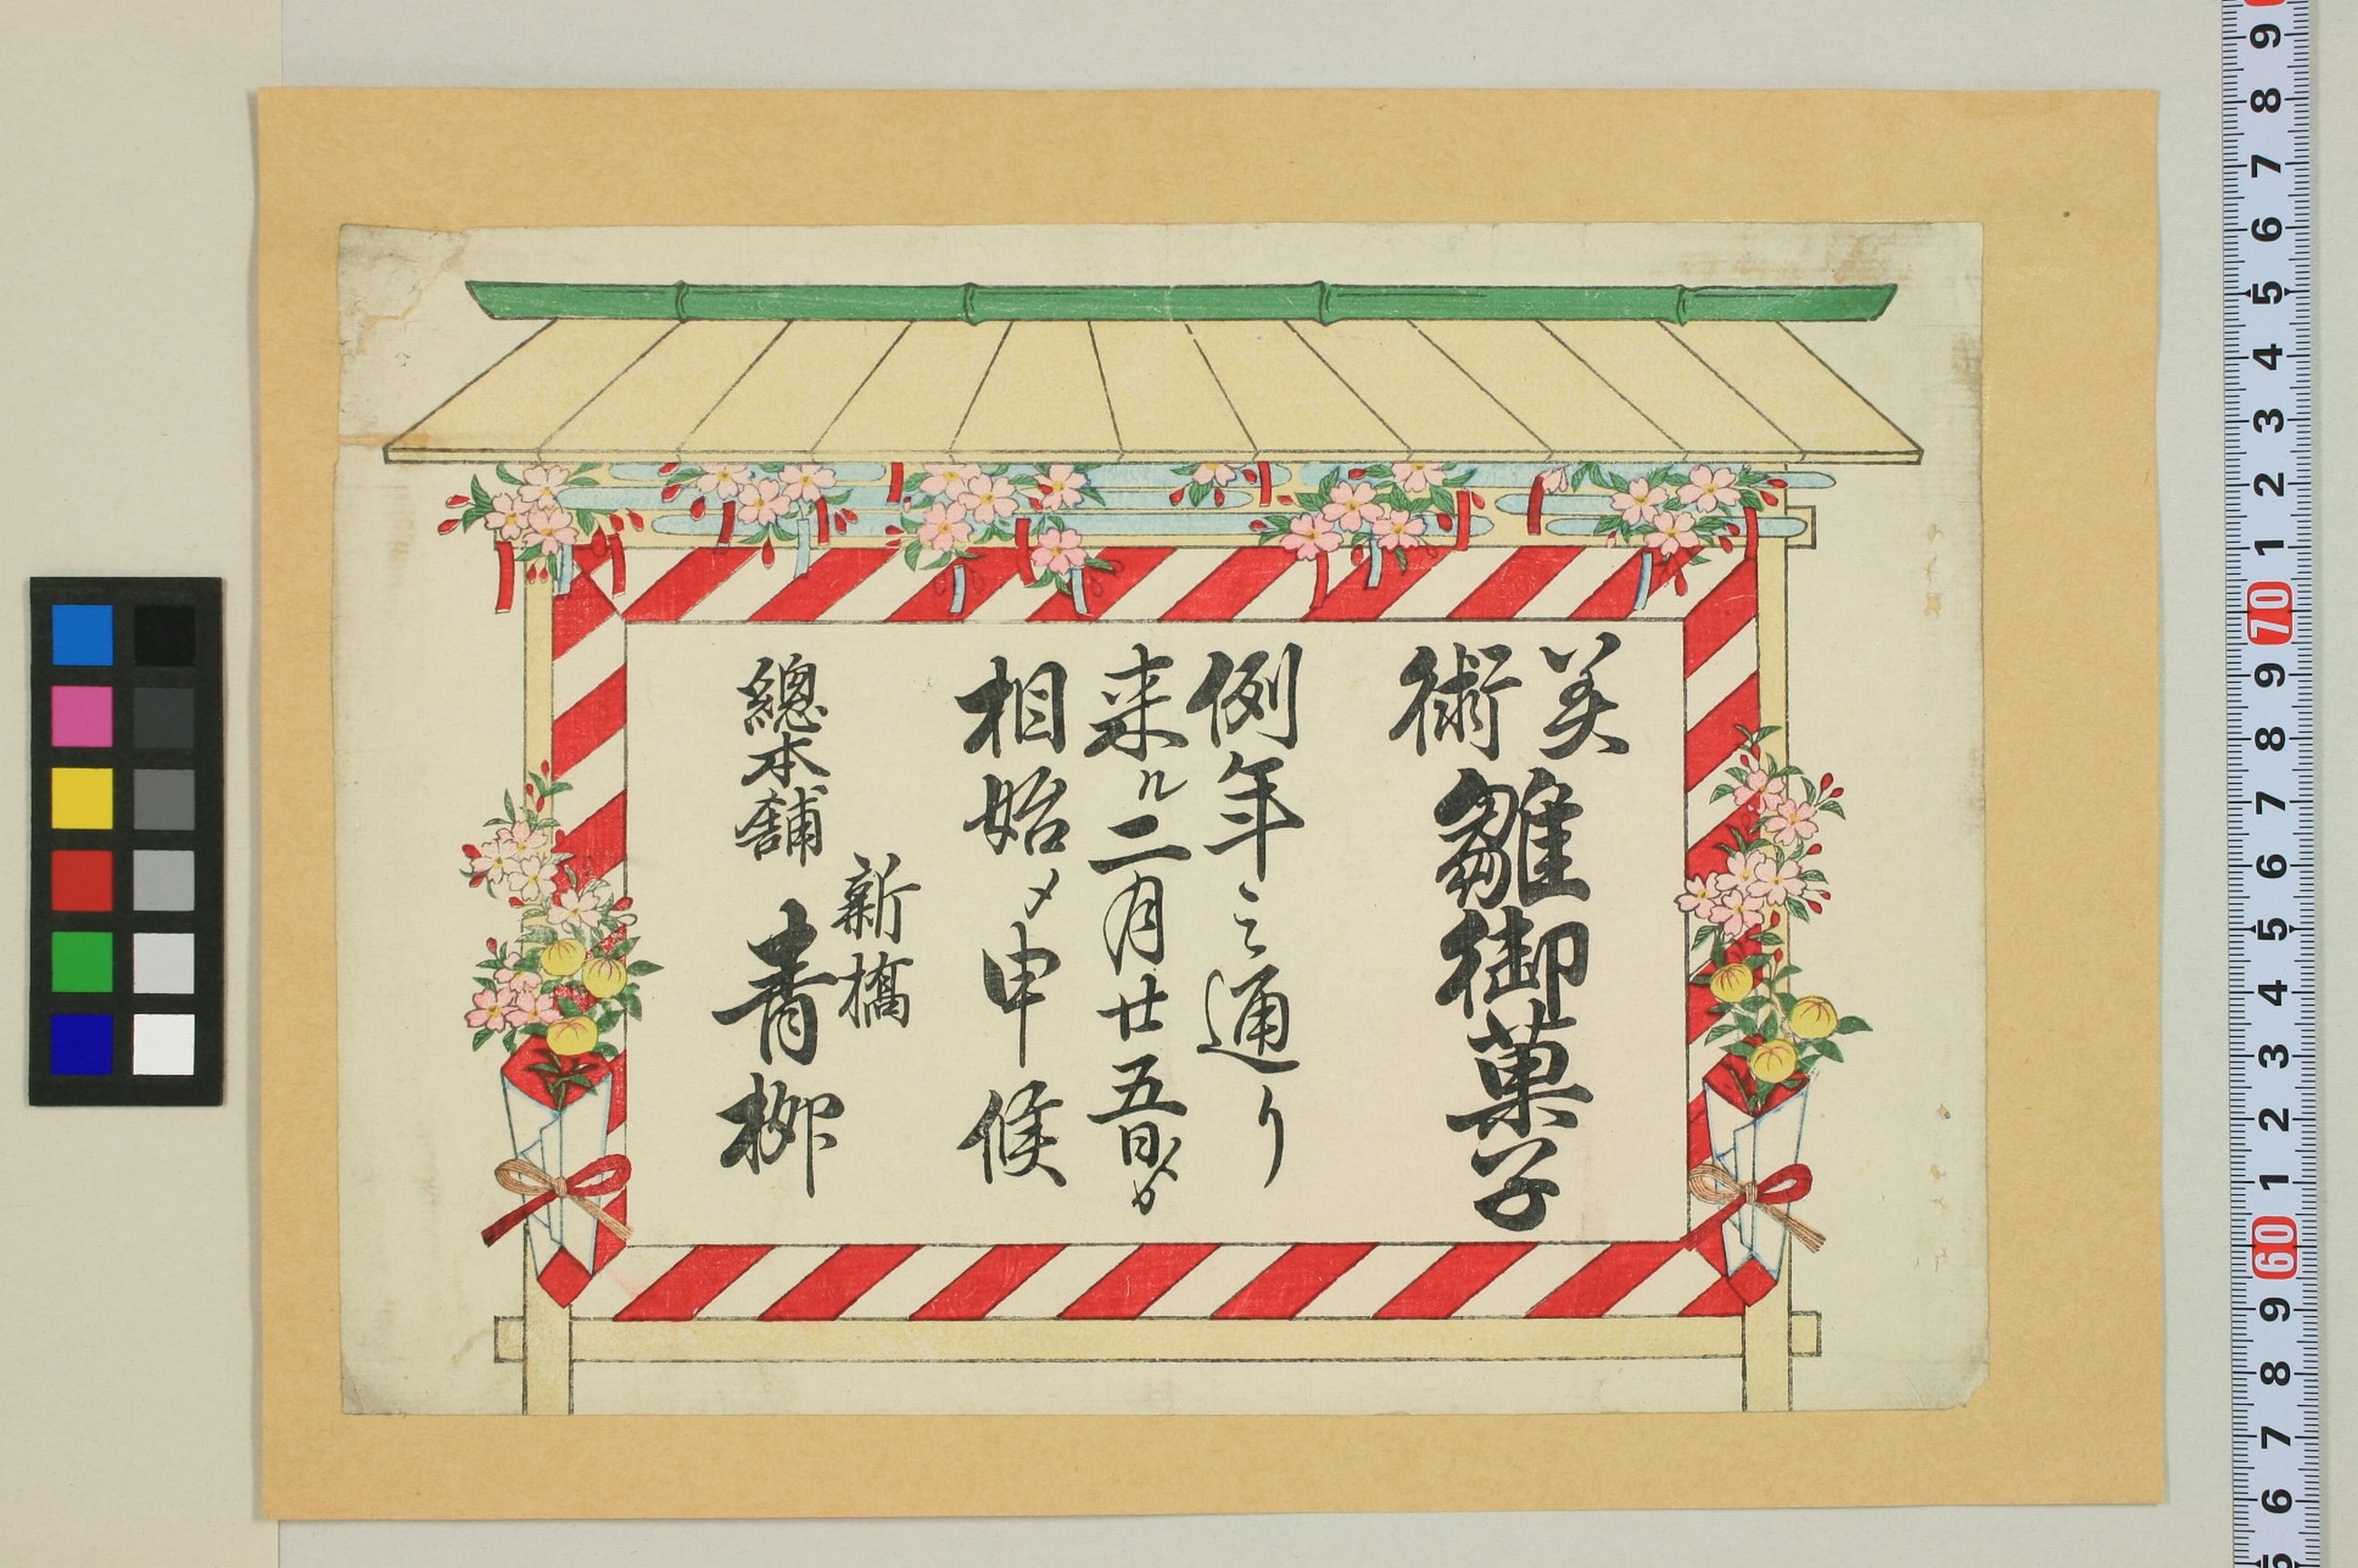 美術雛御菓子
例年之通り
来ル二月廿五日ゟ
相始メ申候
新橋
總本舗 青柳
9
8
7
6
5
4
3
2
1
70
9
8
7
6
5
4
3
2
1
60
9
8
7
6
5